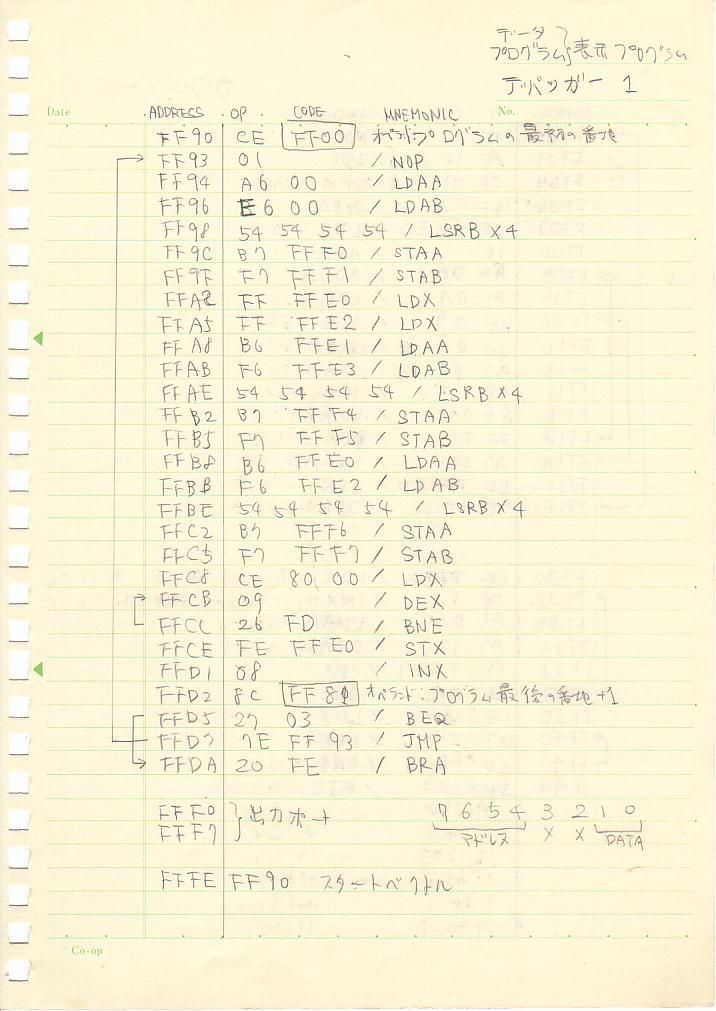 データ
プログラム 表示 プログラム
デバッガー 1
Date ADDRESS OP CODE MNEMONIC No.
FF90 CE FF00 オペランド:プログラムの最初の番地
FF93 01 / NOP
FF94 A6 00 / LDAA
FF96 E6 00 / LDAB
FF98 54 54 54 54 / LSRB×4
FF9C B7 FFF0 / STAA
FF9F F7 FFF1 / STAB
FFA2 FF FFE0 / LDX
FFA5 FF FFE2 / LDX
FFA8 B6 FFE1 / LDAA
FFAB F6 FFE3 / LDAB
FFAE 54 54 54 54 / LSRB×4
FFB2 B7 FFF4 / STAA
FFB5 F7 FFF5 / STAB
FFB8 B6 FFE0 / LDAA
FFBB F6 FFE2 / LDAB
FFBE 54 54 54 54 / LSRB×4
FFC2 B7 FFF6 / STAA
FFC5 F7 FFF7 / STAB
FFC8 CE 80 00 / LDX
FFCB 09 / DEX
FFCC 26 FD / BNE
FFCE FE FFE0 / STX
FFD1 08 / INX
FFD2 8C オペランド:プログラム最後の番地+1
FFD5 27 03 / BEQ
FFD7 7E FF 93 / JMP
FFDA 20 FE / BRA
FFF0 出力ポート 7 6 5 4 3 2 1 0
FFF7 アドレス × × DATA
FFFE FF90 スタートベクトル
Co-op